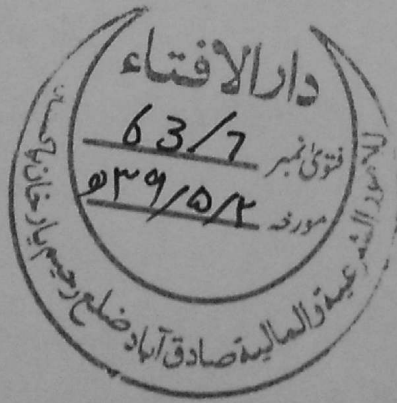 دارالافتاء
فتویٰ نمبر 63/7
مورخہ ۳۹/۵/۲ھ
للامور الشرعیة والمالیة صادق آباد ضلع رحیم یار خان